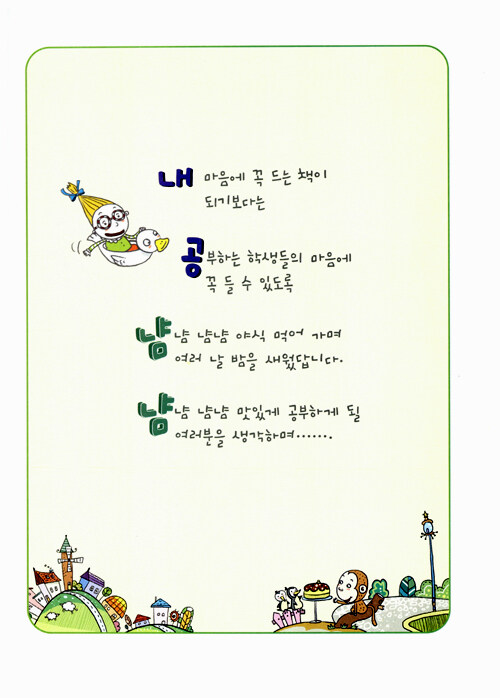 내 마음에 꼭 드는 책이
되기보다는
공부하는 학생들의 마음에
꼭 들 수 있도록
냠냠 냠냠 야식 먹어 가며
여러 날 밤을 새웠답니다.
냠냠 냠냠 맛있게 공부하게 될
여러분을 생각하며.......